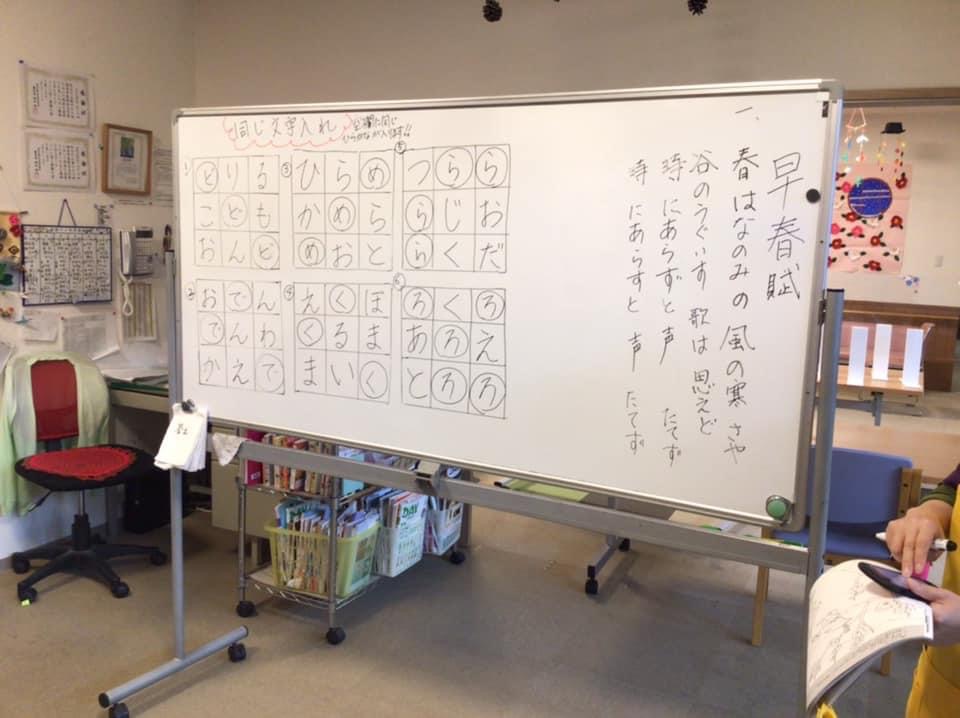 同じ文字入れ
空欄に同じ
ひらがなが入ります!!
①
どりる
こども
おんど
③
ひらめ
かめら
めおと
⑤
つらら
らじお
らくだ
②
おでん
でんわ
かえで
④
えくぼ
くるま
まいく
⑥
ろくろ
あろえ
とろろ
早春賦
一、
春はなのみの 風の寒さや
谷のうぐいす 歌は思えど
時にあらずと 声 たてず
時にあらずと 声 たてず
DAY